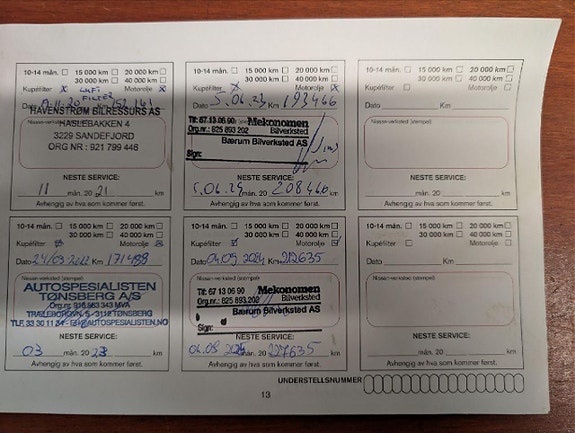 10-14 mån. 15 000 km 20 000 km
30 000 km 40 000 km
Kupéfilter x Luft Motorolje x
FILTER
Dato 11.20 Km
HAVENSTRØM BILRESSURS AS
HASLEBAKKEN 4
3229 SANDEFJORD
ORG NR: 921 799 446
NESTE SERVICE:
11 mån. 20 21 km
Avhengig av hva som kommer først.
10-14 mån. 15 000 km 20 000 km
30 000 km 40 000 km
Kupéfilter x Motorolje x
Dato 5.06.23 Km 193466
Tlf: 67 13 06 90 Mekonomen
Org.nr.: 825 893 202 Bilverksted
Bærum Bilverksted AS
Sign:
NESTE SERVICE:
5.06.24 mån. 20 208466 km
Avhengig av hva som kommer først.
10-14 mån. 15 000 km 20 000 km
30 000 km 40 000 km
Kupéfilter Motorolje
Dato Km
Nissan-verksted (stempel)
NESTE SERVICE:
mån. 20 km
Avhengig av hva som kommer først.
10-14 mån. 15 000 km 20 000 km
30 000 km 40 000 km
Kupéfilter Motorolje
Dato 24/03-2022 Km 171498
Nissan-verksted (stempel)
AUTOSPESIALISTEN
TØNSBERG A/S
Org.nr. 916 983 343 MVA
TRÆLEBORGVN. 5 - 3112 TØNSBERG
NESTE SERVICE:
03 mån. 20 23 km
Avhengig av hva som kommer først.
10-14 mån. 15 000 km 20 000 km
30 000 km 40 000 km
Kupéfilter Motorolje
Dato 04.09.2024 Km 212635
Nissan-verksted (stempel)
Tlf: 67 13 06 90 Mekonomen
Org.nr.: 825 893 202 Bilverksted
Bærum Bilverksted AS
Sign:
NESTE SERVICE:
mån. 20 227635 km
Avhengig av hva som kommer først.
10-14 mån. 15 000 km 20 000 km
30 000 km 40 000 km
Kupéfilter Motorolje
Dato Km
Nissan-verksted (stempel)
NESTE SERVICE:
mån. 20 km
Avhengig av hva som kommer først.
UNDERSTELLSNUMMER
13